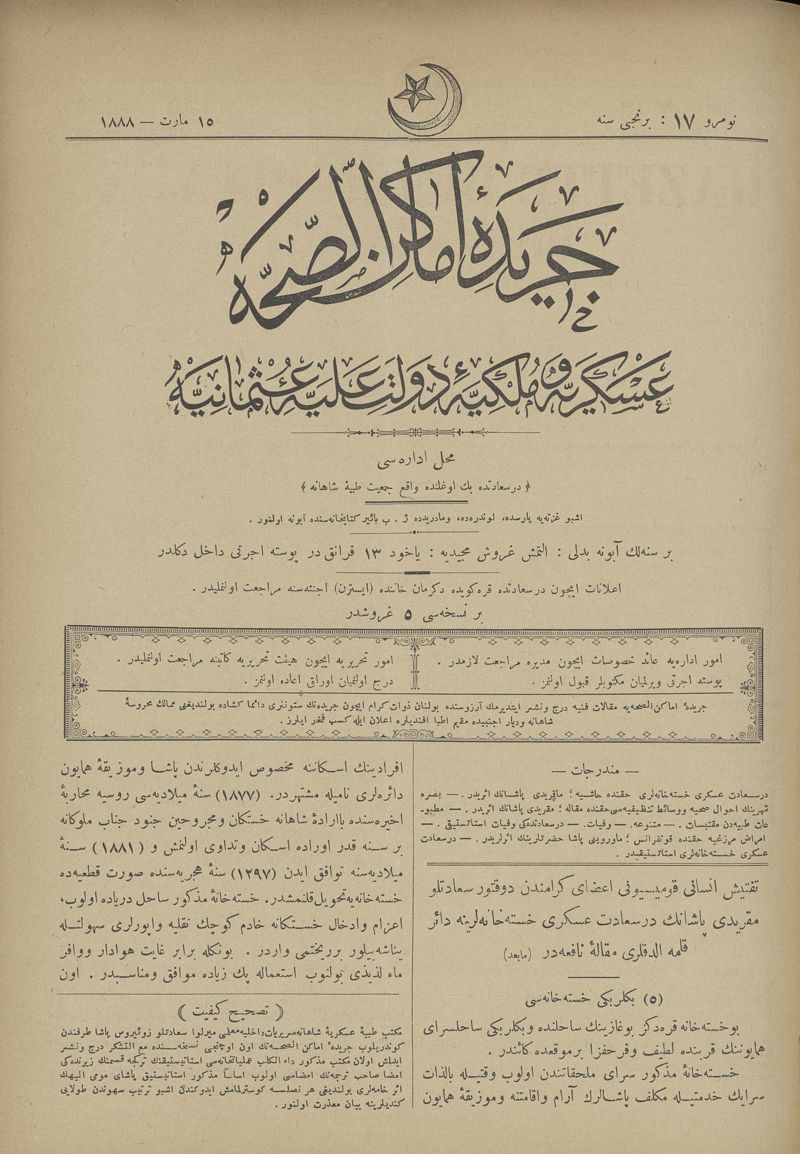 نومرو ١٧ : برنجی سنه
١٥ مارت — ١٨٨٨
جريدۀ اماكن الصّحّه
عسكريه و ملكيۀ دولت عليۀ عثمانيه
محل اداره‌سی
﴿ درسعادتده بك اوغلنده واقع جمعيت طبيۀ شاهانه ﴾
اشبو غزته‌يه پارسده، لوندره‌ده، ومادريدده ژ . ب بائير كتابخانه‌سنده آبونه اولنور .
بر سنه‌لك آبونه بدلی : التمش غروش مجيديه : ياخود ١٣ فرانق در پوسته اجرتی داخل دكلدر
اعلانات ايچون درسعادتده قره‌كويده دكرمان خاننده (ايسترن) اجنته‌سنه مراجعت اولنمليدر .
بر نسخه‌سی ٥ غروشدر
امور اداره‌يه عائد خصوصات ايچون مديره مراجعت لازمدر .
پوسته اجرتی ويرلميان مكتوبلر قبول اولنمز .
امور تحريريه ايچون هيئت تحريريه كاتبنه مراجعت اولنمليدر .
درج اولنميان اوراق اعاده اولنمز .
جريدۀ اماكن الصحه‌يه مقالات فنيه درج ونشر ايتديرمك آرزوسنده بولنان ذوات كرام ايچون جريده‌نك ستونلری دائما كشاده بولنديغنی ممالك محروسۀ
شاهانه وديار اجنبيده مقيم اطبا افنديلره اعلان ايله كسب فخر ايلرز .
— مندرجات —
درسعادت عسكری خسته‌خانه‌لری حقنده حاشيه ؛ ماقريدی پاشانك اثريدر . — بصره
شهرينك احوال صحيه ووسائط تنظيفيه‌سی حقنده مقاله ؛ مقريدی پاشانك اثريدر . — مطبو‌ـ
عات طبيه‌دن مقتبسات . — متنوعه . — وفيات . — درسعادتدكی وفيات استاتستيقی . —
امراض مرزغيه حقنده قونفرانس ؛ ماورويني پاشا حضرتلرينك اثرلريدر . — درسعادت
عسكری خسته‌خانه‌لری استاتستيقيدر .
تفتيش انسانی قوميسيونی اعضای كرامندن دوقتور سعادتلو
مقريدی پاشانك درسعادت عسكری خسته‌خانه‌لرينه دائر
قلمه الدقلری مقالۀ نافعه‌در (مابعد)
(٥) بكلربكی خسته‌خانه‌سی
بوخسته‌خانه قره‌دكز بوغازينك ساحلنده وبكلربكی ساحلسرای
همايوننك قربنده لطيف وفرحفزا برموقعده كائندر .
خسته‌خانۀ مذكور سرای ملحقاتندن اولوب وقتيله بالذات
سرايك خدمتيله مكلف پاشالرك آرام واقامتنه وموزيقۀ همايون
افرادينك اسكاننه مخصوص ايدوكلرندن پاشا وموزيقۀ همايون
دائره‌لری ناميله مشتهردر . (١٨٧٧) سنۀ ميلاديه‌سی روسيه محاربۀ
اخيره‌سنده باارادۀ شاهانه خستكان ومجروحين جنود جناب ملوكانه
بر سنه قدر اوراده اسكان وتداوی اولنمش و (١٨٨١) سنۀ
ميلاديه‌سنه توافق ايدن (١٢٩٧) سنۀ هجريه‌سنده صورت قطعيه‌ده
خسته‌خانه‌يه تحويل قلنمشدر . خسته‌خانۀ مذكور ساحل درياده اولوب ،
اعزام وادخال خستكانه خادم كوچك نقليه واپورلری سهولتله
يناشه‌بيلور برريختمی واردر . بونكله برابر غايت هوادار ووافر
ماء لذيذی بولنوب استعماله پك زياده موافق ومناسبدر . اون
﴿ تصحيح كيفيت ﴾
مكتب طبيۀ عسكريۀ شاهانه سريريات داخليه معلمی ميرلوا سعادتلو زوئيروس پاشا طرفندن
كوندريلوب جريدۀ اماكن الصحه‌نك اون اوچنجی نسخه‌سنده مع التشكر درج ونشر
ايدلمش اولان مكتب مذكور داء الكلب عملياتخانه‌سی استاتيستيقنك تركجه قسمنك زيرنده‌كی
امضا صاحب ترجمه‌نك امضاسی اولوب اساساً مذكور استاتيستيق پاشای مومی اليهك
اثر خامه‌لری بولنديغی هر نصلسه كوسترلمامش ايدوكندن اشبو ترتيب سهوندن طولايی
كنديلرينه بيان معذرت اولنور .